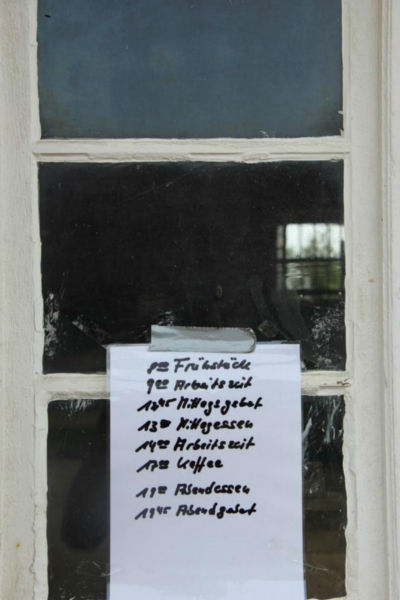 8⁰⁰ Frühstück
9⁰⁰ Arbeitszeit
12⁴⁵ Mittagsgebet
13⁰⁰ Mittagessen
14⁰⁰ Arbeitszeit
17⁰⁰ Kaffee
19⁰⁰ Abendessen
19⁴⁵ Abendgebet